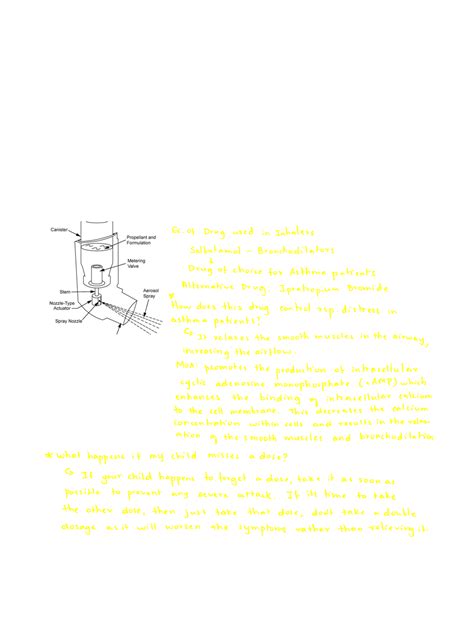 Canister
Propellant and
Formulation
Metering
Valve
Stem
Aerosol
Spray
Nozzle-Type
Actuator
Spray Nozzle
Eg. of Drug used in Inhalers
Salbutamol - Bronchodilators
Drug of choice for Asthma patients
Alternative Drug. Ipratropium Bromide
* How does this drug control rsp. distress in
asthma patients?
It relaxes the smooth muscles in the airway,
increasing the airflow.
MOA: promotes the production of intracellular
cyclic adenosine monophosphate (cAMP) which
enhances the binding of intracellular calcium
to the cell membrane. This decreases the calcium
concentration within cells and results in the relax-
ation of the smooth muscles and bronchodilation
* What happens if my child misses a dose?
If your child happens to forget a dose, take it as soon as
possible to prevent any severe attack. If its time to take
the other dose, then just take that dose, dont take a double
dosage as it will worsen the symptoms rather than relieving it.